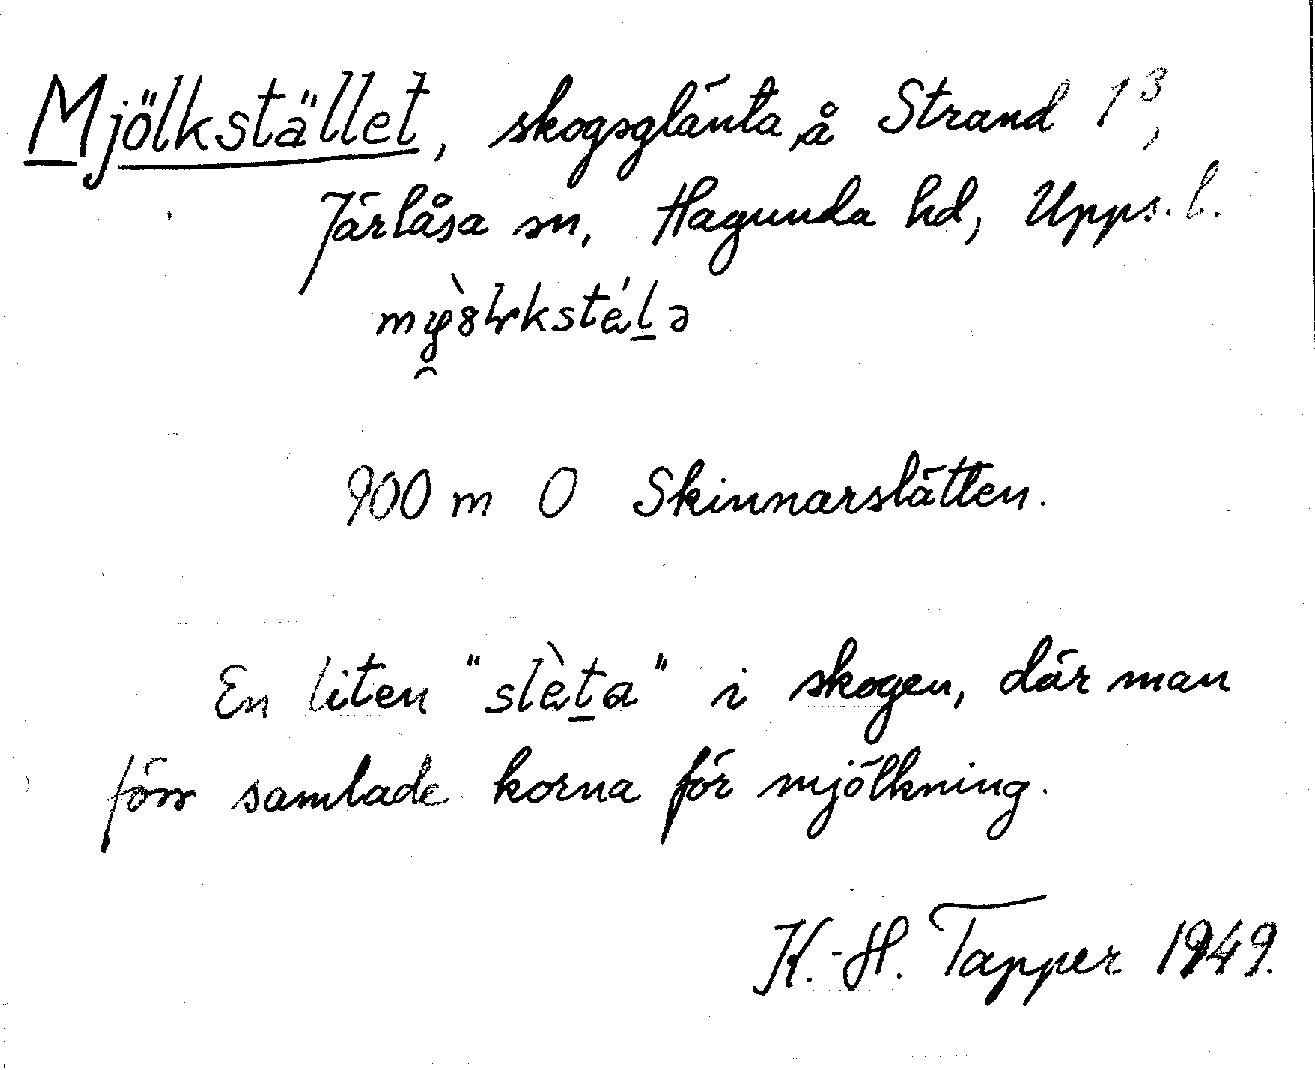 Mjölkstället, skogsglänta å Strand 1³,
Järlåsa sn, Hagunda hd, Upps. l.
900 m O Skinnarslätten.
En liten "slè̱ta" i skogen, där man
förr samlade korna för mjölkning.
K.-H. Tapper 1949.